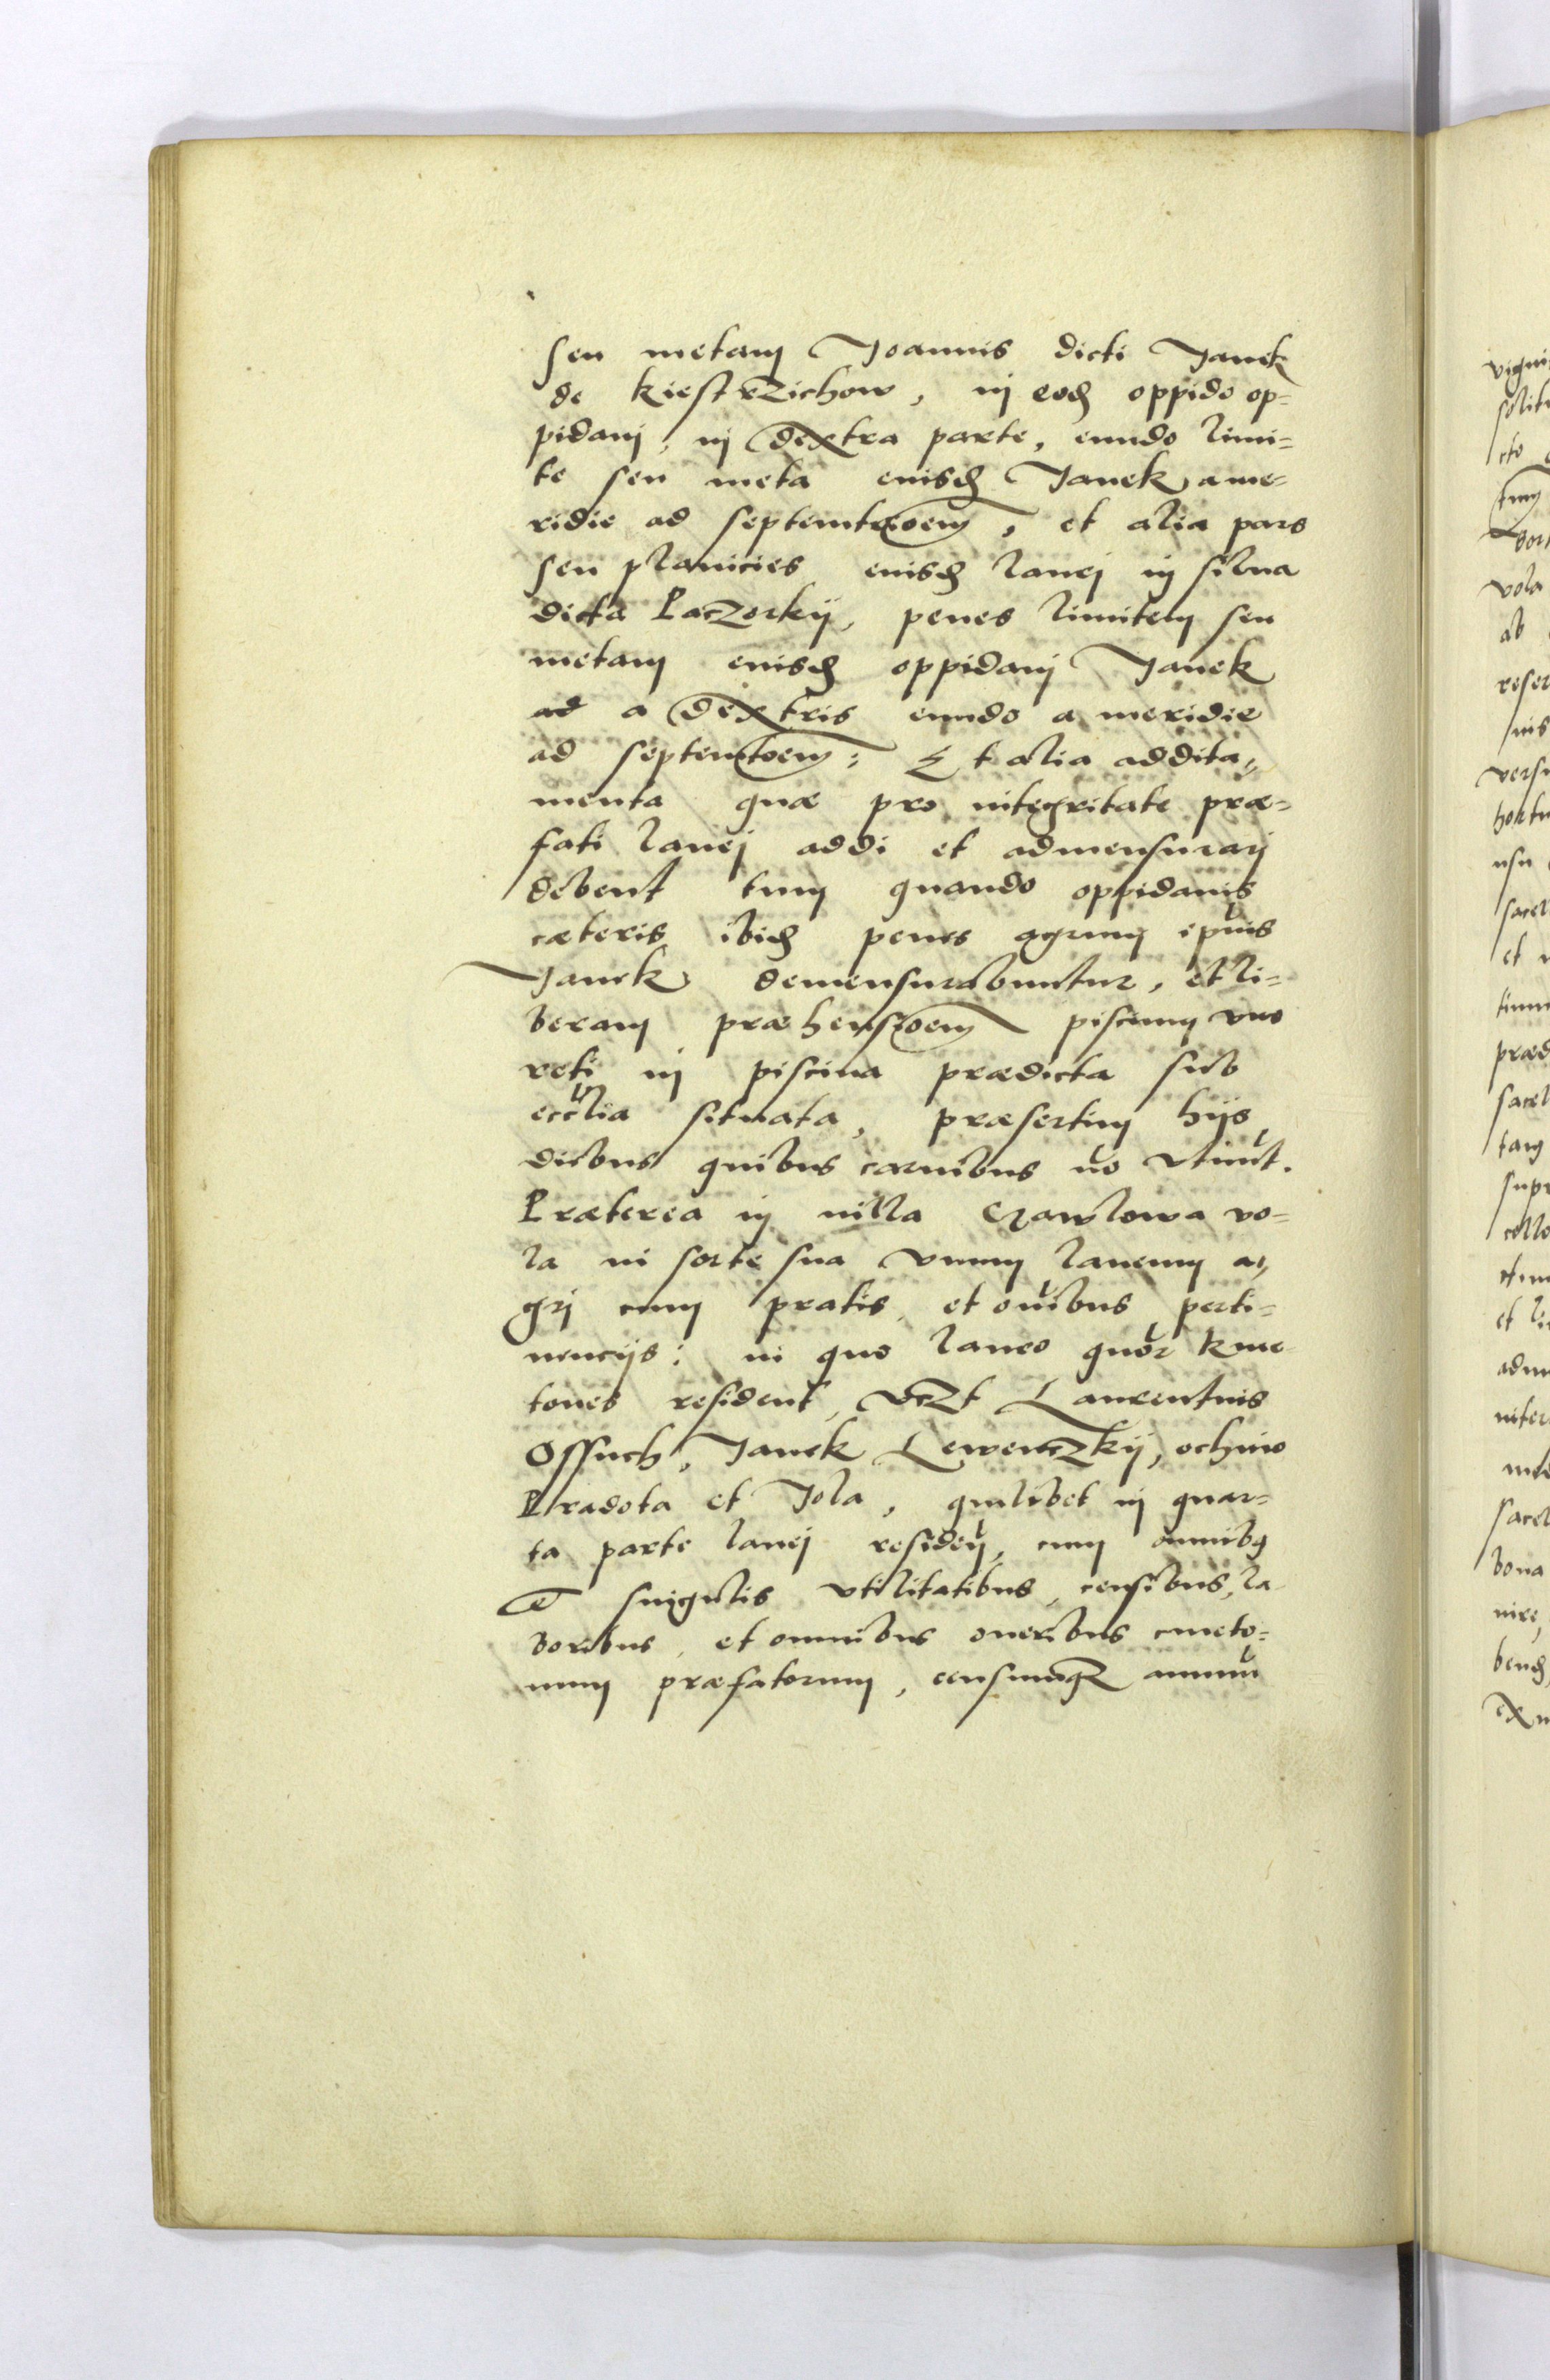 seu metam Joannis dicti Janek
de kiestrzichow, in eod oppido op=
pidani, in dextra parte, eundo limi=
te seu meta eiusd Janek a me=
ridie ad septemtrioem, et alia pars
seu planicies eiusd lanei in silua
dicta Paczorkÿ, penes limitem seu
metam eiusd oppidani Janek
ad a dextris eundo a meridie
ad septemtoem: Et alia addita,
menta quæ pro integritate præ=
fati lanei addi et admensurari
debent tum quando oppidanis
cæteris ibid penes agrum ipius
Janek demensurabuntur, et li=
beram præhensioem piscium vno
reti in piscina prædicta sub
ecclia situata, præsertim hijs
diebus quibus carnibus no vtunt.
Præterea in uilla Czawlowa vo=
la in sorte sua vnum laneum a,
gri cum pratis et oibus perti=
nencijs: in quo laneo quor kme
tones resident, vczt Laurentius
Ossuch, Janek Lewenczkij, ochnio
Pradota et Jola, quilibet in quar=
ta parte lanei residen, cum omnibq
et singulis vtilitatibus, censibus, la
boribus, et omnibus oneribus cmeto=
num præfatorum, censumqz annuu

vigin
solit
cto
tum
dor
vola
ab
reser
nis
versu
hortu
usu
sacel
et
tinu
præd
sacel
tam
supr
cello
et li
adm
inter
sacel
bona
nire,
bend